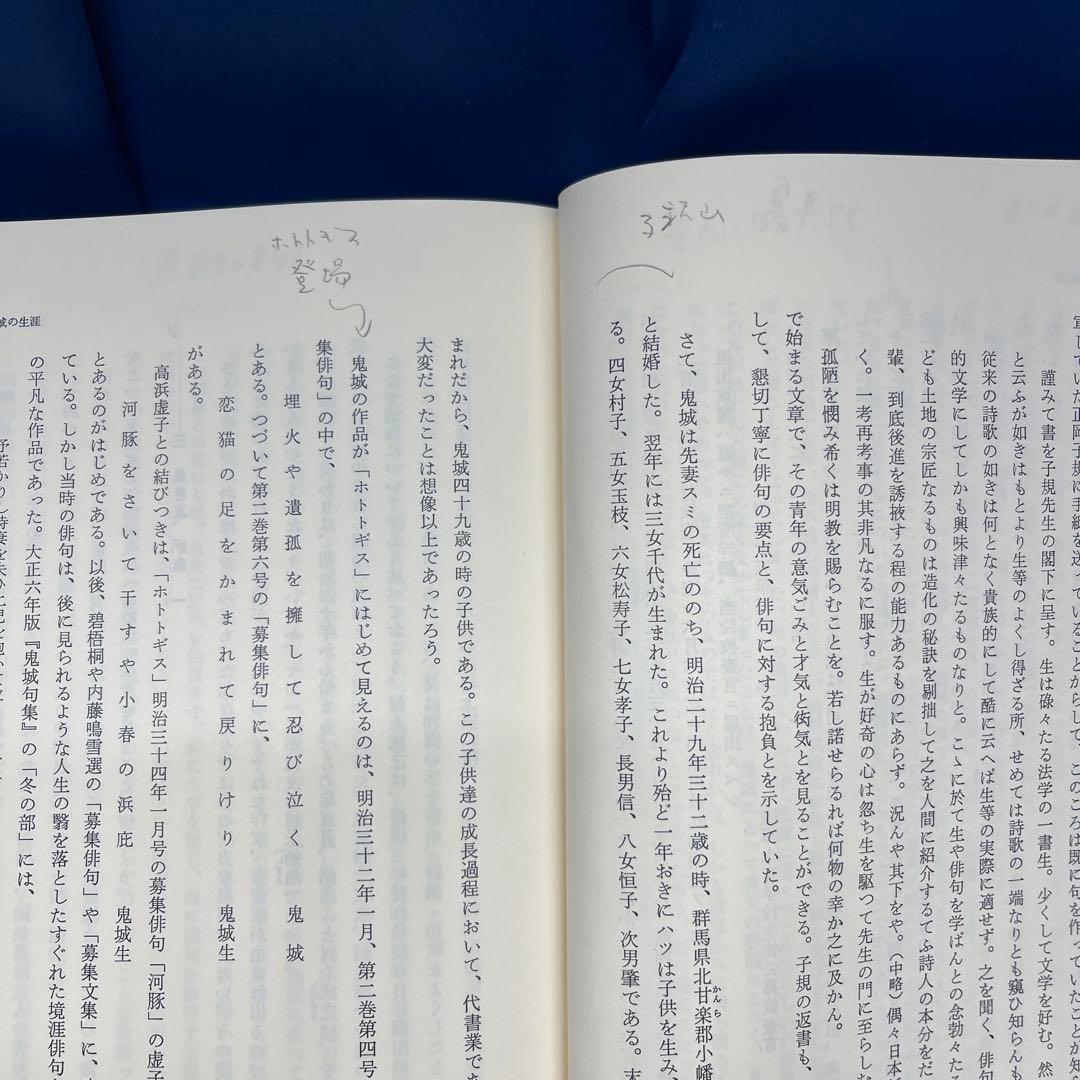 子規山
宣していた正岡子規に手紙を送っていることからして、このころは既に句を作っていたことが知ら
謹みて書を子規先生の閣下に呈す。生は碌々たる法学の一書生。少くして文学を好む。然
と云ふが如きはもとより生等のよくし得ざる所、せめては詩歌の一端なりとも窺ひ知らんも
従来の詩歌の如きは何となく貴族的にして酷に云へば生等の実際に適せず。之を聞く、俳句
的文学にしてしかも興味津々たるものなりと。こゝに於て生や俳句を学ばんとの念勃々たる
ども土地の宗匠なるものは造化の秘訣を剔拙して之を人間に紹介するてふ詩人の本分をだ
輩、到底後進を誘掖する程の能力あるものにあらず。況んや其下をや。（中略）偶々日本
く。一考再考事の其非凡なるに服す。生が好奇の心は忽ち生を駆つて先生の門に至らしむ
孤陋を憫み希くは明教を賜らむことを。若し諾せらるれば何物の幸か之に及かん。
で始まる文章で、その青年の意気ごみと才気と衒気とを見ることができる。子規の返書も、
して、懇切丁寧に俳句の要点と、俳句に対する抱負とを示していた。
さて、鬼城は先妻スミの死亡ののち、明治二十九年三十二歳の時、群馬県北甘楽郡小幡
かんら
と結婚した。翌年には三女千代が生まれた。これより殆ど一年おきにハツは子供を生み、
る。四女村子、五女玉枝、六女松寿子、七女孝子、長男信、八女恒子、次男肇である。末
ホトトギス
登場
城の生涯
まれだから、鬼城四十九歳の時の子供である。この子供達の成長過程において、代書業でさ
大変だったことは想像以上であったろう。
鬼城の作品が「ホトトギス」にはじめて見えるのは、明治三十二年一月、第二巻第四号
集俳句」の中で、
埋火や遺孤を擁して忍び泣く 鬼城
とある。つづいて第二巻第六号の「募集俳句」に、
恋猫の足をかまれて戻りけり 鬼城生
がある。
高浜虚子との結びつきは、「ホトトギス」明治三十四年一月号の募集俳句「河豚」の虚子
河豚をさいて干すや小春の浜庇 鬼城生
とあるのがはじめである。以後、碧梧桐や内藤鳴雪選の「募集俳句」や「募集文集」に、
ている。しかし当時の俳句は、後に見られるような人生の翳を落としたすぐれた境涯俳句
の平凡な作品であった。大正六年版『鬼城句集』の「冬の部」には、
予若かりし時妻を失ひ二児を抱